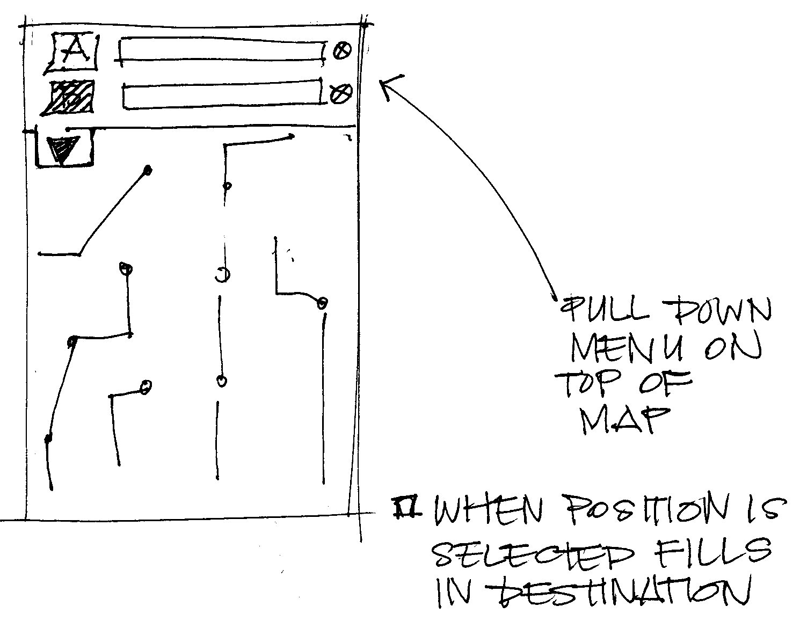 A
B
PULL DOWN
MENU ON
TOP OF
MAP
WHEN POSITION IS
SELECTED FILLS
IN DESTINATION